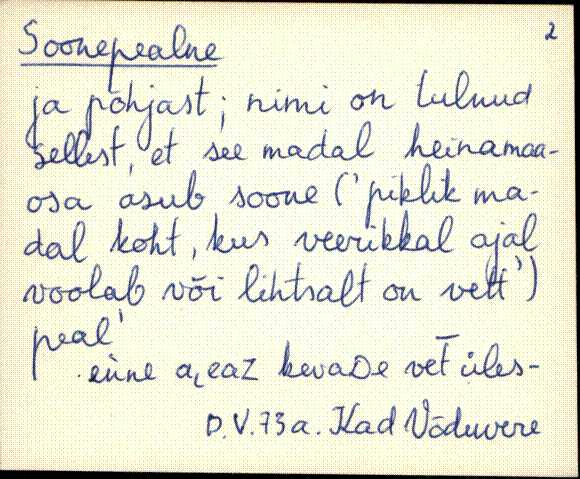 2
Soonepealne
ja põhjast; nimi on tulnud
sellest, et see madal heinamaa-
osa asub soone ('piklik ma-
dal koht, kus veerikkal ajal
voolab või lihtsalt on vett')
peal'
eine kevaDe veT üles-
D.V.73a. Kad Võduvere